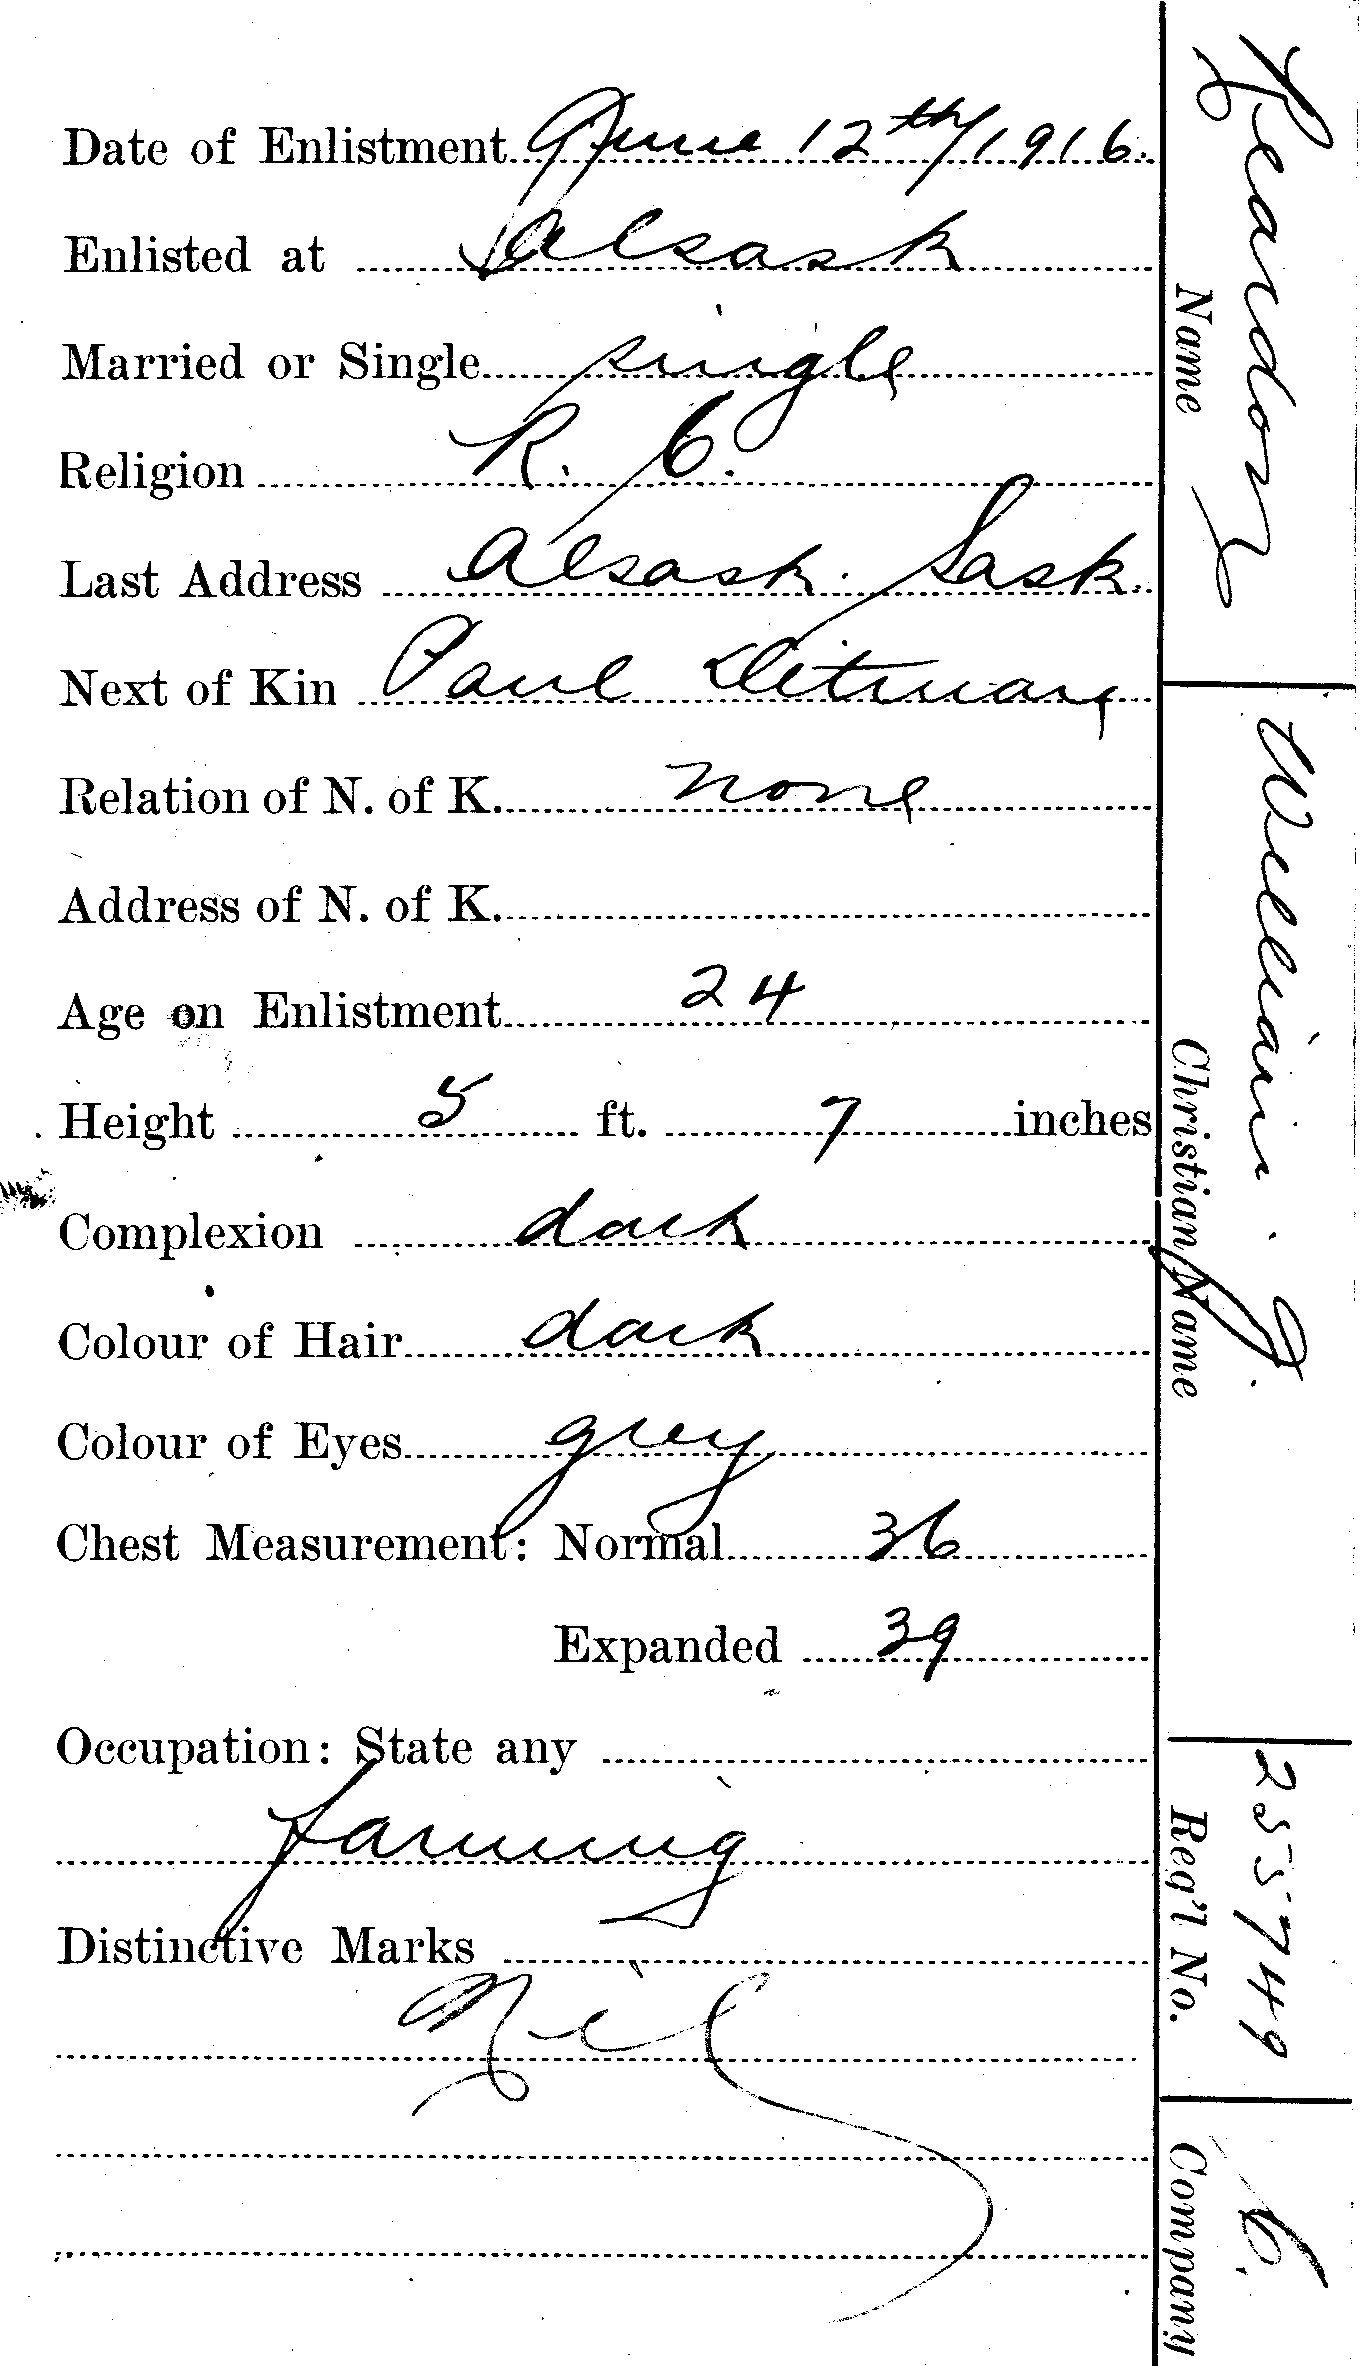 Date of Enlistment June 12th/1916.
Enlisted at Alsask
Married or Single single
Religion R. C.
Last Address Alsask. Sask.
Next of Kin Paul Ditman
Relation of N. of K. none
Address of N. of K.
Age on Enlistment 24
Height 5 ft. 7 inches
Complexion dark
Colour of Hair dark
Colour of Eyes grey
Chest Measurement: Normal 36
Expanded 39
Occupation: State any
farming
Distinctive Marks
Nil
Reardon
Name
William . J.
Christian Name
255749
Reg'l No.
C.
Company